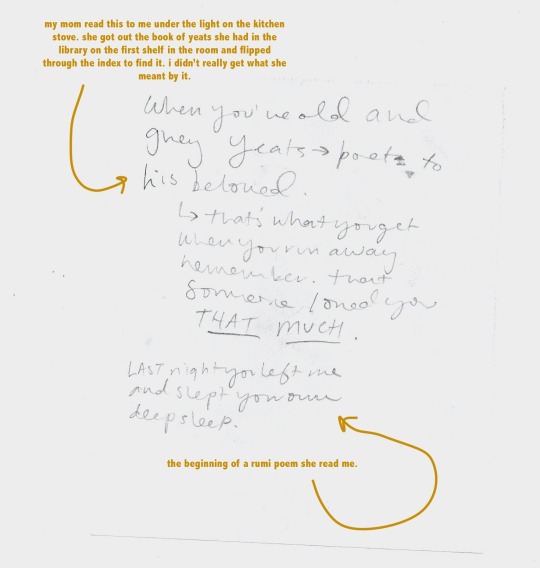 my mom read this to me under the light on the kitchen
stove. she got out the book of yeats she had in the
library on the first shelf in the room and flipped
through the index to find it. i didn't really get what she
meant by it.
When you're old and
grey Yeats → poet to
his beloved.
↳ that's what you get
when you run away
remember. that
someone loved you
THAT MUCH.
LAST night you left me
and slept your own
deep sleep.
the beginning of a rumi poem she read me.